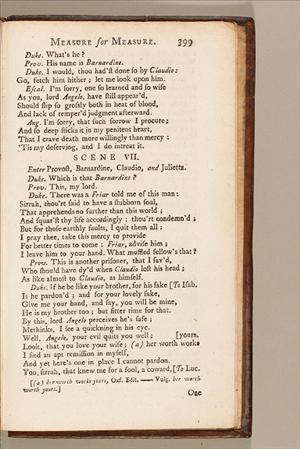 MEASURE for MEASURE. 399
Duke. What's he?
Prov. His name is Barnardine.
Duke. I would, thou had'st done so by Claudio:
Go, fetch him hither; let me look upon him.
Escal. I'm sorry, one so learned and so wise
As you, lord Angelo, have still appear'd,
Should slip so grosly both in heat of blood,
And lack of temper'd judgment afterward.
Ang. I'm sorry, that such sorrow I procure;
And so deep sticks it in my penitent heart,
That I crave death more willingly than mercy:
'Tis my deserving, and I do intreat it.
SCENE VII.
Enter Provost, Barnardine, Claudio, and Julietta.
Duke. Which is that Barnardine?
Prov. This, my lord.
Duke. There was a Friar told me of this man:
Sirrah, thou'rt said to have a stubborn soul,
That apprehends no further than this world;
And squar'st thy life accordingly: thou'rt condemn'd;
But for those earthly faults, I quit them all:
I pray thee, take this mercy to provide
For better times to come: Friar, advise him;
I leave him to your hand. What muffled fellow's that?
Prov. This is another prisoner, that I sav'd,
Who should have dy'd when Claudio lost his head;
As like almost to Claudio, as himself.
Duke. If he be like your brother, for his sake [To Isab.
Is he pardon'd; and for your lovely sake,
Give me your hand, and say, you will be mine,
He is my brother too; but fitter time for that.
By this, lord Angelo perceives he's safe;
Methinks, I see a quickning in his eye.
Well, Angelo, your evil quits you well; [yours.
Look, that you love your wife; (a) her worth works
I find an apt remission in myself,
And yet here's one in place I cannot pardon.
You, sirrah, that knew me for a fool, a coward, [To Luc.
[(a) her worth works yours, Oxf. Edit. —— Vulg. her worth
worth yours.]
One